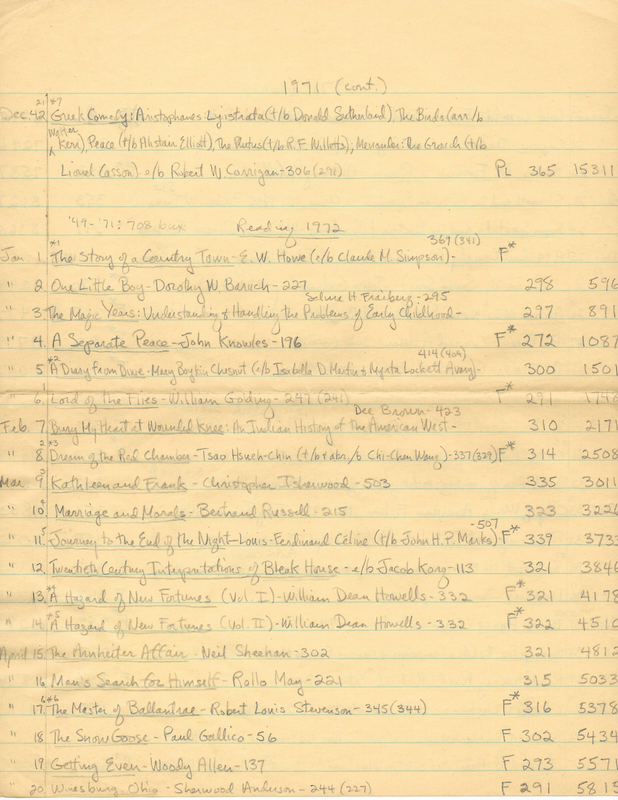 1971 (cont.)
21 *9
Dec. 42 Greek Comedy: Aristophanes: Lysistrata (t/b Donald Sutherland), The Birds (arr/b
Walter
Kerr), Peace (t/b Alistair Elliott), The Plutus (t/b R.F. Willetts); Menander: The Grouch (t/b
Lionel Casson) e/b Robert W. Corrigan-306 (291) PL 365 15311
'49-'71: 708 bks Reading 1972
*1 369 (341)
Jan 1. The Story of a Country Town - E. W. Howe (e/b Claude M. Simpson) - F*
" 2. One Little Boy - Dorothy W. Baruch - 227 298 596
Selma H. Fraiberg - 295
" 3. The Magic Years: Understanding & Handling the Problems of Early Childhood - 297 891
" 4. A Separate Peace - John Knowles - 196 F* 272 1087
*2 414 (404)
" 5 A Diary From Dixie - Mary Boykin Chesnut (e/b Isabella D. Martin & Myrta Lockett Avary) - 300 1501
1
" 6. Lord of the Flies - William Golding - 247 (241) F* 291
Dee Brown - 423
Feb. 7. Bury My Heart at Wounded Knee: An Indian History of the American West - 310 2171
2 *3
" 8. Dream of the Red Chamber - Tsao Hsueh-Chin (t/b & abr./b Chi-Chen Wang) - 337 (329) F* 314 2508
3
Mar. 9 Kathleen and Frank - Christopher Isherwood - 503 335 3011
4
" 10. Marriage and Morals - Bertrand Russell - 215 323 3226
5 - 507
" 11. Journey to the End of the Night - Louis-Ferdinand Céline (t/b John H.P. Marks) F* 339 3733
" 12. Twentieth Century Interpretations of Bleak House - e/b Jacob Korg - 113 321 3846
" 13. *4 A Hazard of New Fortunes (Vol. I) - William Dean Howells - 332 F* 321 4178
" 14. *5 A Hazard of New Fortunes (Vol. II) - William Dean Howells - 332 F* 322 4510
April 15. The Arnheiter Affair - Neil Sheehan - 302 321 4812
" 16. Man's Search for Himself - Rollo May - 221 315 5033
6 *6
" 17. The Master of Ballantrae - Robert Louis Stevenson - 345 (344) F* 316 5378
" 18 The Snow Goose - Paul Gallico - 56 F 302 5434
" 19. Getting Even - Woody Allen - 137 F 293 5571
" 20. Winesburg, Ohio - Sherwood Anderson - 244 (227) F 291 5815